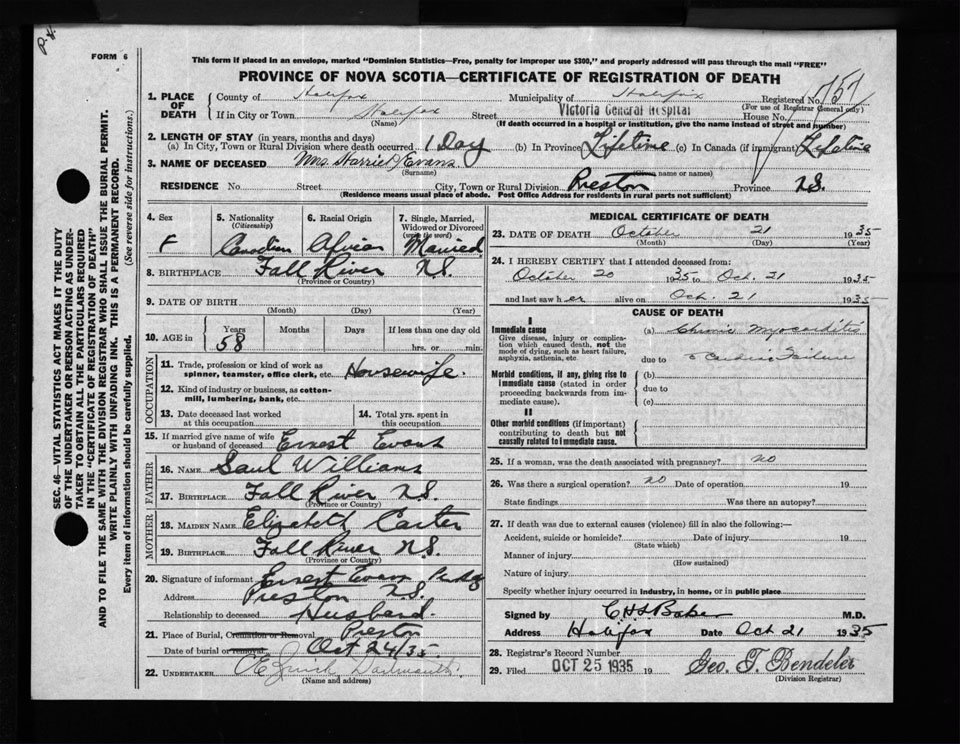 P.H.
FORM 6
This form if placed in an envelope, marked "Dominion Statistics—Free, penalty for improper use $300," and properly addressed will pass through the mail "FREE"
PROVINCE OF NOVA SCOTIA—CERTIFICATE OF REGISTRATION OF DEATH
1. PLACE OF DEATH
County of Halifax Municipality of Halifax Registered No. 1151
(For use of Registrar General only)
If in City or Town Halifax Street Victoria General Hospital House No.
(Name) (If death occurred in a hospital or institution, give the name instead of street and number)
2. LENGTH OF STAY (in years, months and days)
(a) In City, Town or Rural Division where death occurred. 1 Day (b) In Province Lifetime (c) In Canada (if immigrant) Lifetime
3. NAME OF DECEASED Mrs. Harriet Evans
(Surname) name or names)
RESIDENCE No. Street City, Town or Rural Division Preston Province N.S.
(Residence means usual place of abode. Post Office Address for residents in rural parts not sufficient)
4. Sex F
5. Nationality (Citizenship) Canadian
6. Racial Origin African
7. Single, Married, Widowed or Divorced (write the word) Married
8. BIRTHPLACE Fall River N.S.
(Province or Country)
9. DATE OF BIRTH
(Month) (Day) (Year)
10. AGE in Years 58 Months Days If less than one day old hrs. or min.
OCCUPATION
11. Trade, profession or kind of work as spinner, teamster, office clerk, etc. Housewife.
12. Kind of industry or business, as cotton-mill, lumbering, bank, etc.
13. Date deceased last worked at this occupation
14. Total yrs. spent in this occupation
15. If married give name of wife or husband of deceased Ernest Evans
FATHER
16. NAME Saul Williams
17. BIRTHPLACE Fall River N.S.
(Province or Country)
MOTHER
18. MAIDEN NAME Elizabeth Carter
19. BIRTHPLACE Fall River N.S.
(Province or Country)
20. Signature of informant Ernest Evans
Address Preston N.S.
Relationship to deceased Husband.
21. Place of Burial, Cremation or Removal Preston
Date of burial or removal Oct 24/35.
22. UNDERTAKER Dartmouth
(Name and address)
MEDICAL CERTIFICATE OF DEATH
23. DATE OF DEATH October 21 1935
(Month) (Day) (Year)
24. I HEREBY CERTIFY that I attended deceased from:
October 20 1935 to Oct. 21 1935
and last saw her alive on Oct. 21 1935
CAUSE OF DEATH
I
Immediate cause
Give disease, injury or complication which caused death, not the mode of dying, such as heart failure, asphyxia, asthenia, etc.
(a) Chronic Myocarditis
due to Cardiac Failure
Morbid conditions, if any, giving rise to immediate cause (stated in order proceeding backwards from immediate cause).
(b)
due to
(c)
II
Other morbid conditions (if important) contributing to death but not causally related to immediate cause.
25. If a woman, was the death associated with pregnancy? no
26. Was there a surgical operation? no Date of operation 19
State findings Was there an autopsy?
27. If death was due to external causes (violence) fill in also the following:—
Accident, suicide or homicide? Date of injury 19
(State which)
Manner of injury
(How sustained)
Nature of injury
Specify whether injury occurred in industry, in home, or in public place
Signed by C H S Baker M.D.
Address Halifax Date Oct 21 1935
28. Registrar's Record Number
29. Filed OCT 25 1935 19 Geo. T. Bendeler
(Division Registrar)
SEC. 46—VITAL STATISTICS ACT MAKES IT THE DUTY
OF THE UNDERTAKER OR PERSON ACTING AS UNDER-
TAKER TO OBTAIN ALL THE PARTICULARS REQUIRED
IN THE "CERTIFICATE OF REGISTRATION OF DEATH"
AND TO FILE THE SAME WITH THE DIVISION REGISTRAR WHO SHALL ISSUE THE BURIAL PERMIT.
WRITE PLAINLY WITH UNFADING INK. THIS IS A PERMANENT RECORD.
Every item of information should be carefully supplied. (See reverse side for instructions.)